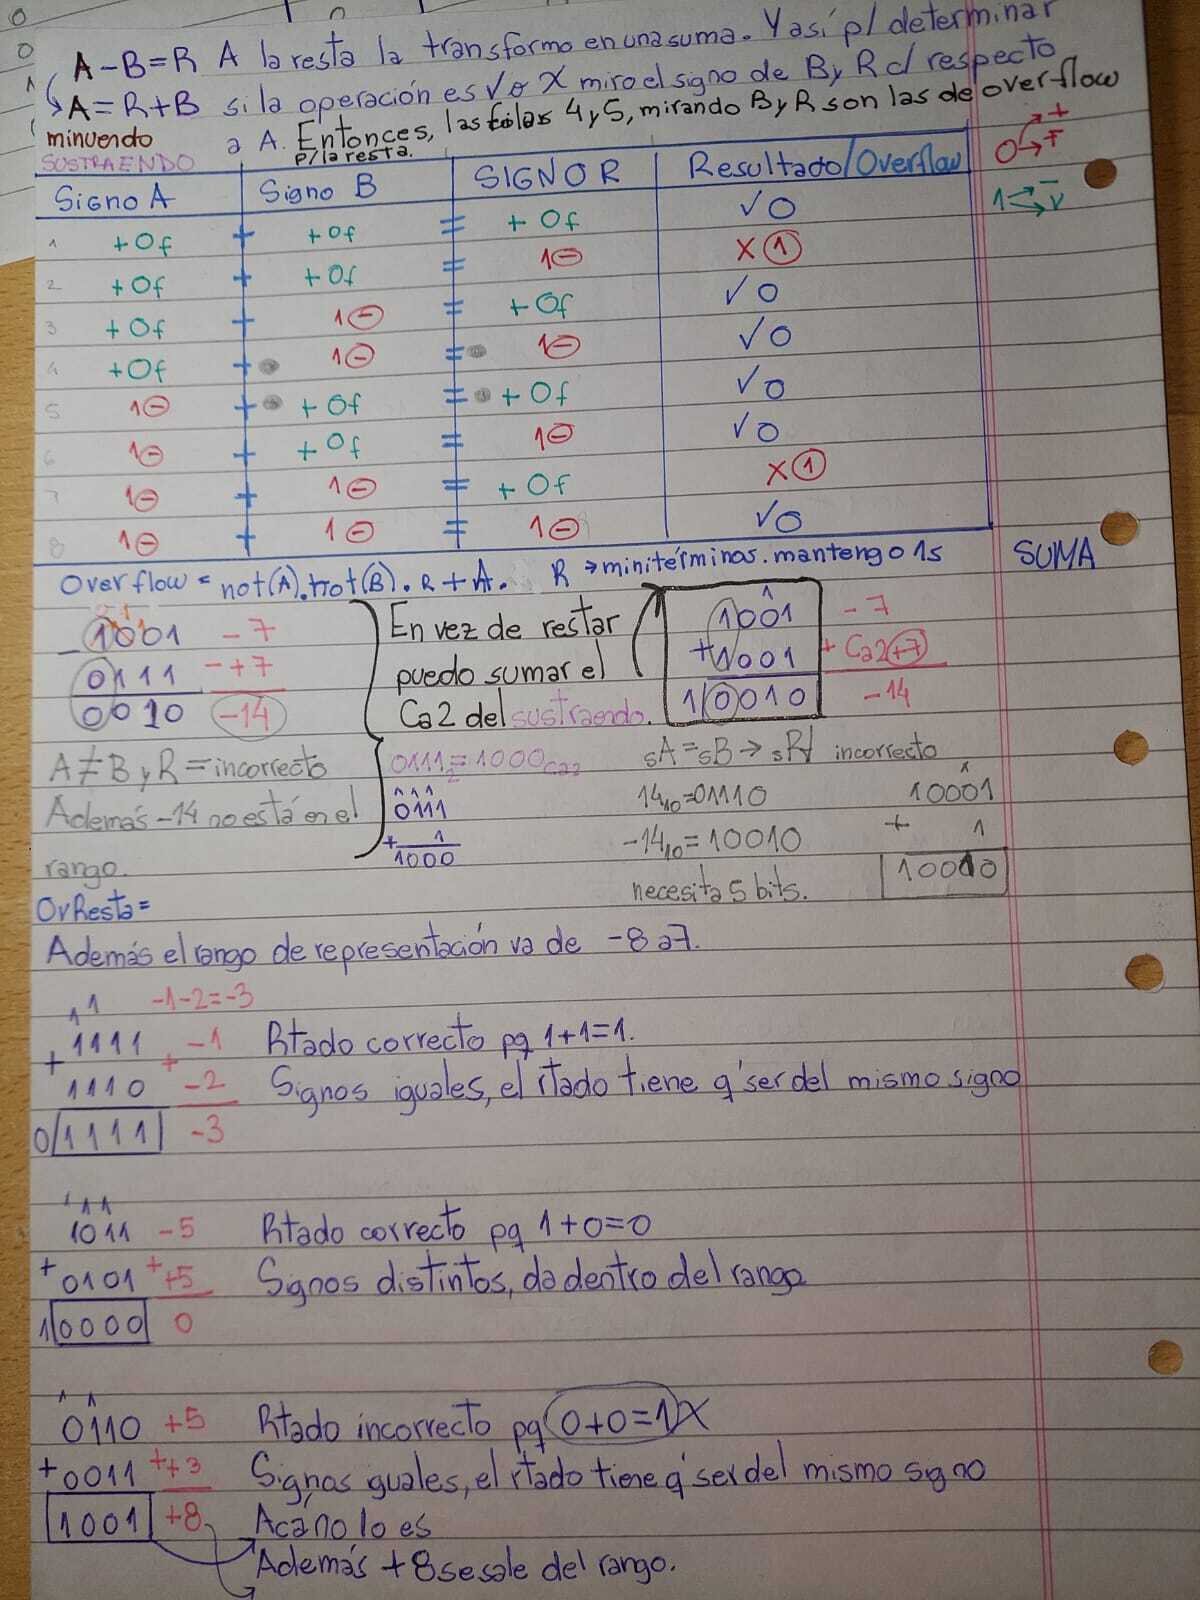 A-B=R A la resta la transformo en una suma. Y así p/ determinar
A=R+B si la operación es √ o X miro el signo de B y R c/ respecto
minuendo a A. Entonces, las filas 4 y 5, mirando B y R son las de overflow
SUSTRAENDO p/ la resta.
Signo A Signo B SIGNO R Resultado/Overflow
0 + F
1 - V
1 +0f + +0f = +0f √0
2 +0f + +0f = 1⊖ X①
3 +0f + 1⊖ = +0f √0
4 +0f + 1⊖ = 1⊖ √0
5 1⊖ + +0f = +0f √0
6 1⊖ + +0f = 1⊖ √0
7 1⊖ + 1⊖ = +0f X①
8 1⊖ + 1⊖ = 1⊖ √0
Overflow = not(A).not(B).R + A. R → minitérminos. mantengo 1s SUMA
1001 -7
- 0111 - +7
0010 -14
En vez de restar
puedo sumar el
Ca2 del sustraendo.
1001 -7
+1001 + Ca2+7
1/0010 -14
A≠B y R = incorrecto
Además -14 no está en el
rango.
0111₂=1000Ca2
111
0111
+ 1
1000
sA=sB→sR/ incorrecto
14₁₀=01110
-14₁₀=10010
necesita 5 bits.
1
10001
+ 1
10010
OvResta=
Además el rango de representación va de -8 a 7.
1 1 -1-2=-3
1111 -1 Rtado correcto pq 1+1=1.
+ 1110 + -2 Signos iguales, el rtado tiene q' ser del mismo signo
0/1111 -3
1 1 1
1011 -5 Rtado correcto pq 1+0=0
+0101 + +5 Signos distintos, da dentro del rango
1/0000 0
1 1
0110 +5 Rtado incorrecto pq 0+0=1 X
+0011 + +3 Signos iguales, el rtado tiene q' ser del mismo signo
1001 +8 Acá no lo es
Además +8 se sale del rango.